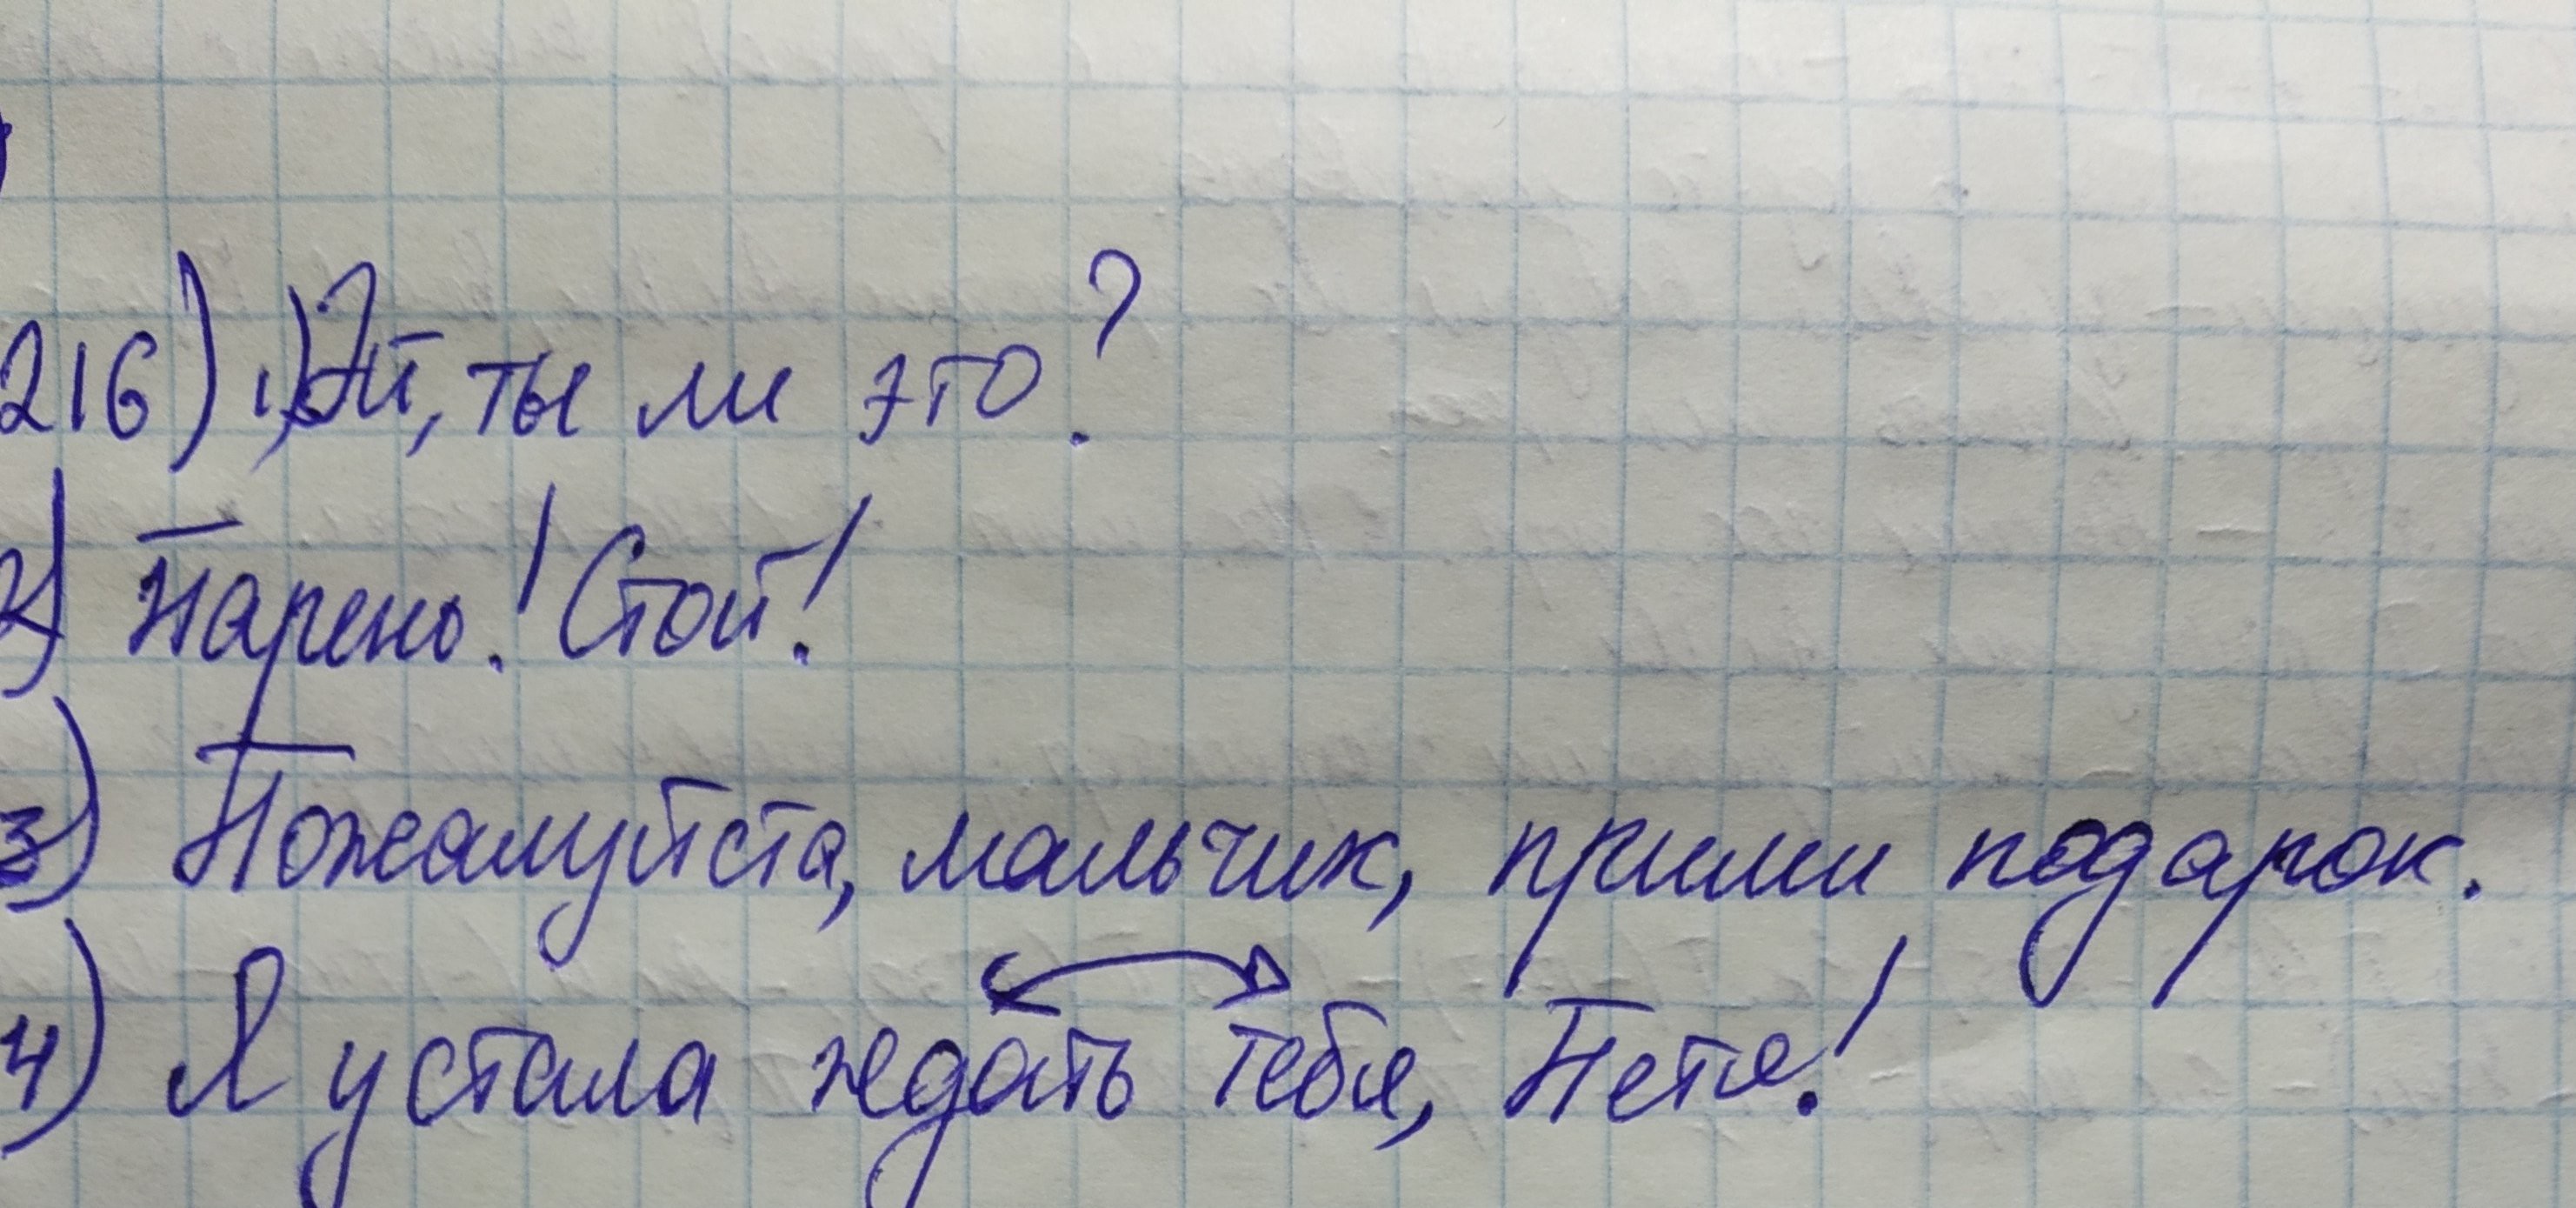 216) 1) Эй, ты ли это?
2) Парень! Стой!
3) Пожалуйста, мальчик, прими подарок.
4) Я устала ждать тебя, Петя!